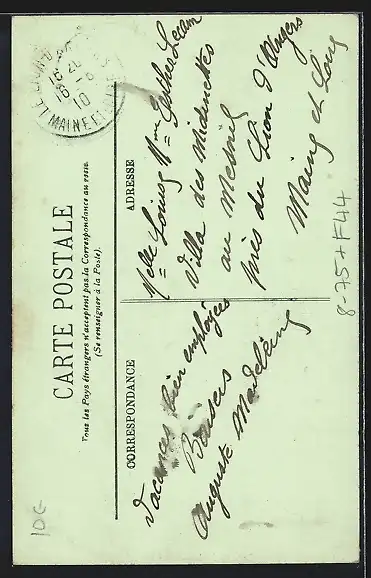 CARTE POSTALE
Tous les Pays étrangers n'acceptent pas la Correspondance au recto.
(Se renseigner à la Poste).
CORRESPONDANCE
ADRESSE
Vacances bien employées
Baisers
Auguste Madeleine
Melle Louise Mme Esther
Villa des Midinettes
au Mesnil
près du Lion d'Angers
Maine et Loire
LE LION D'
MAINE ET LOIRE
16
10
8-75 + F44
10€